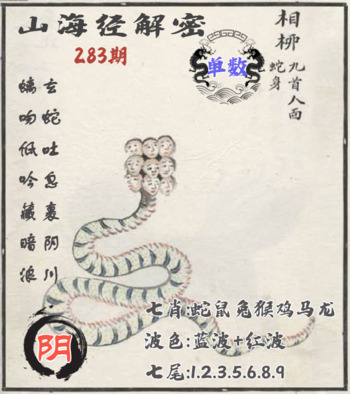 山海经解密
283期
单数
相柳
九首人面
蛇身
玄蛇吐息裹阴川
螭吻低吟藏暗浪
阴
七肖:蛇鼠兔猴鸡马龙
波色:蓝波+红波
七尾:1.2.3.5.6.8.9